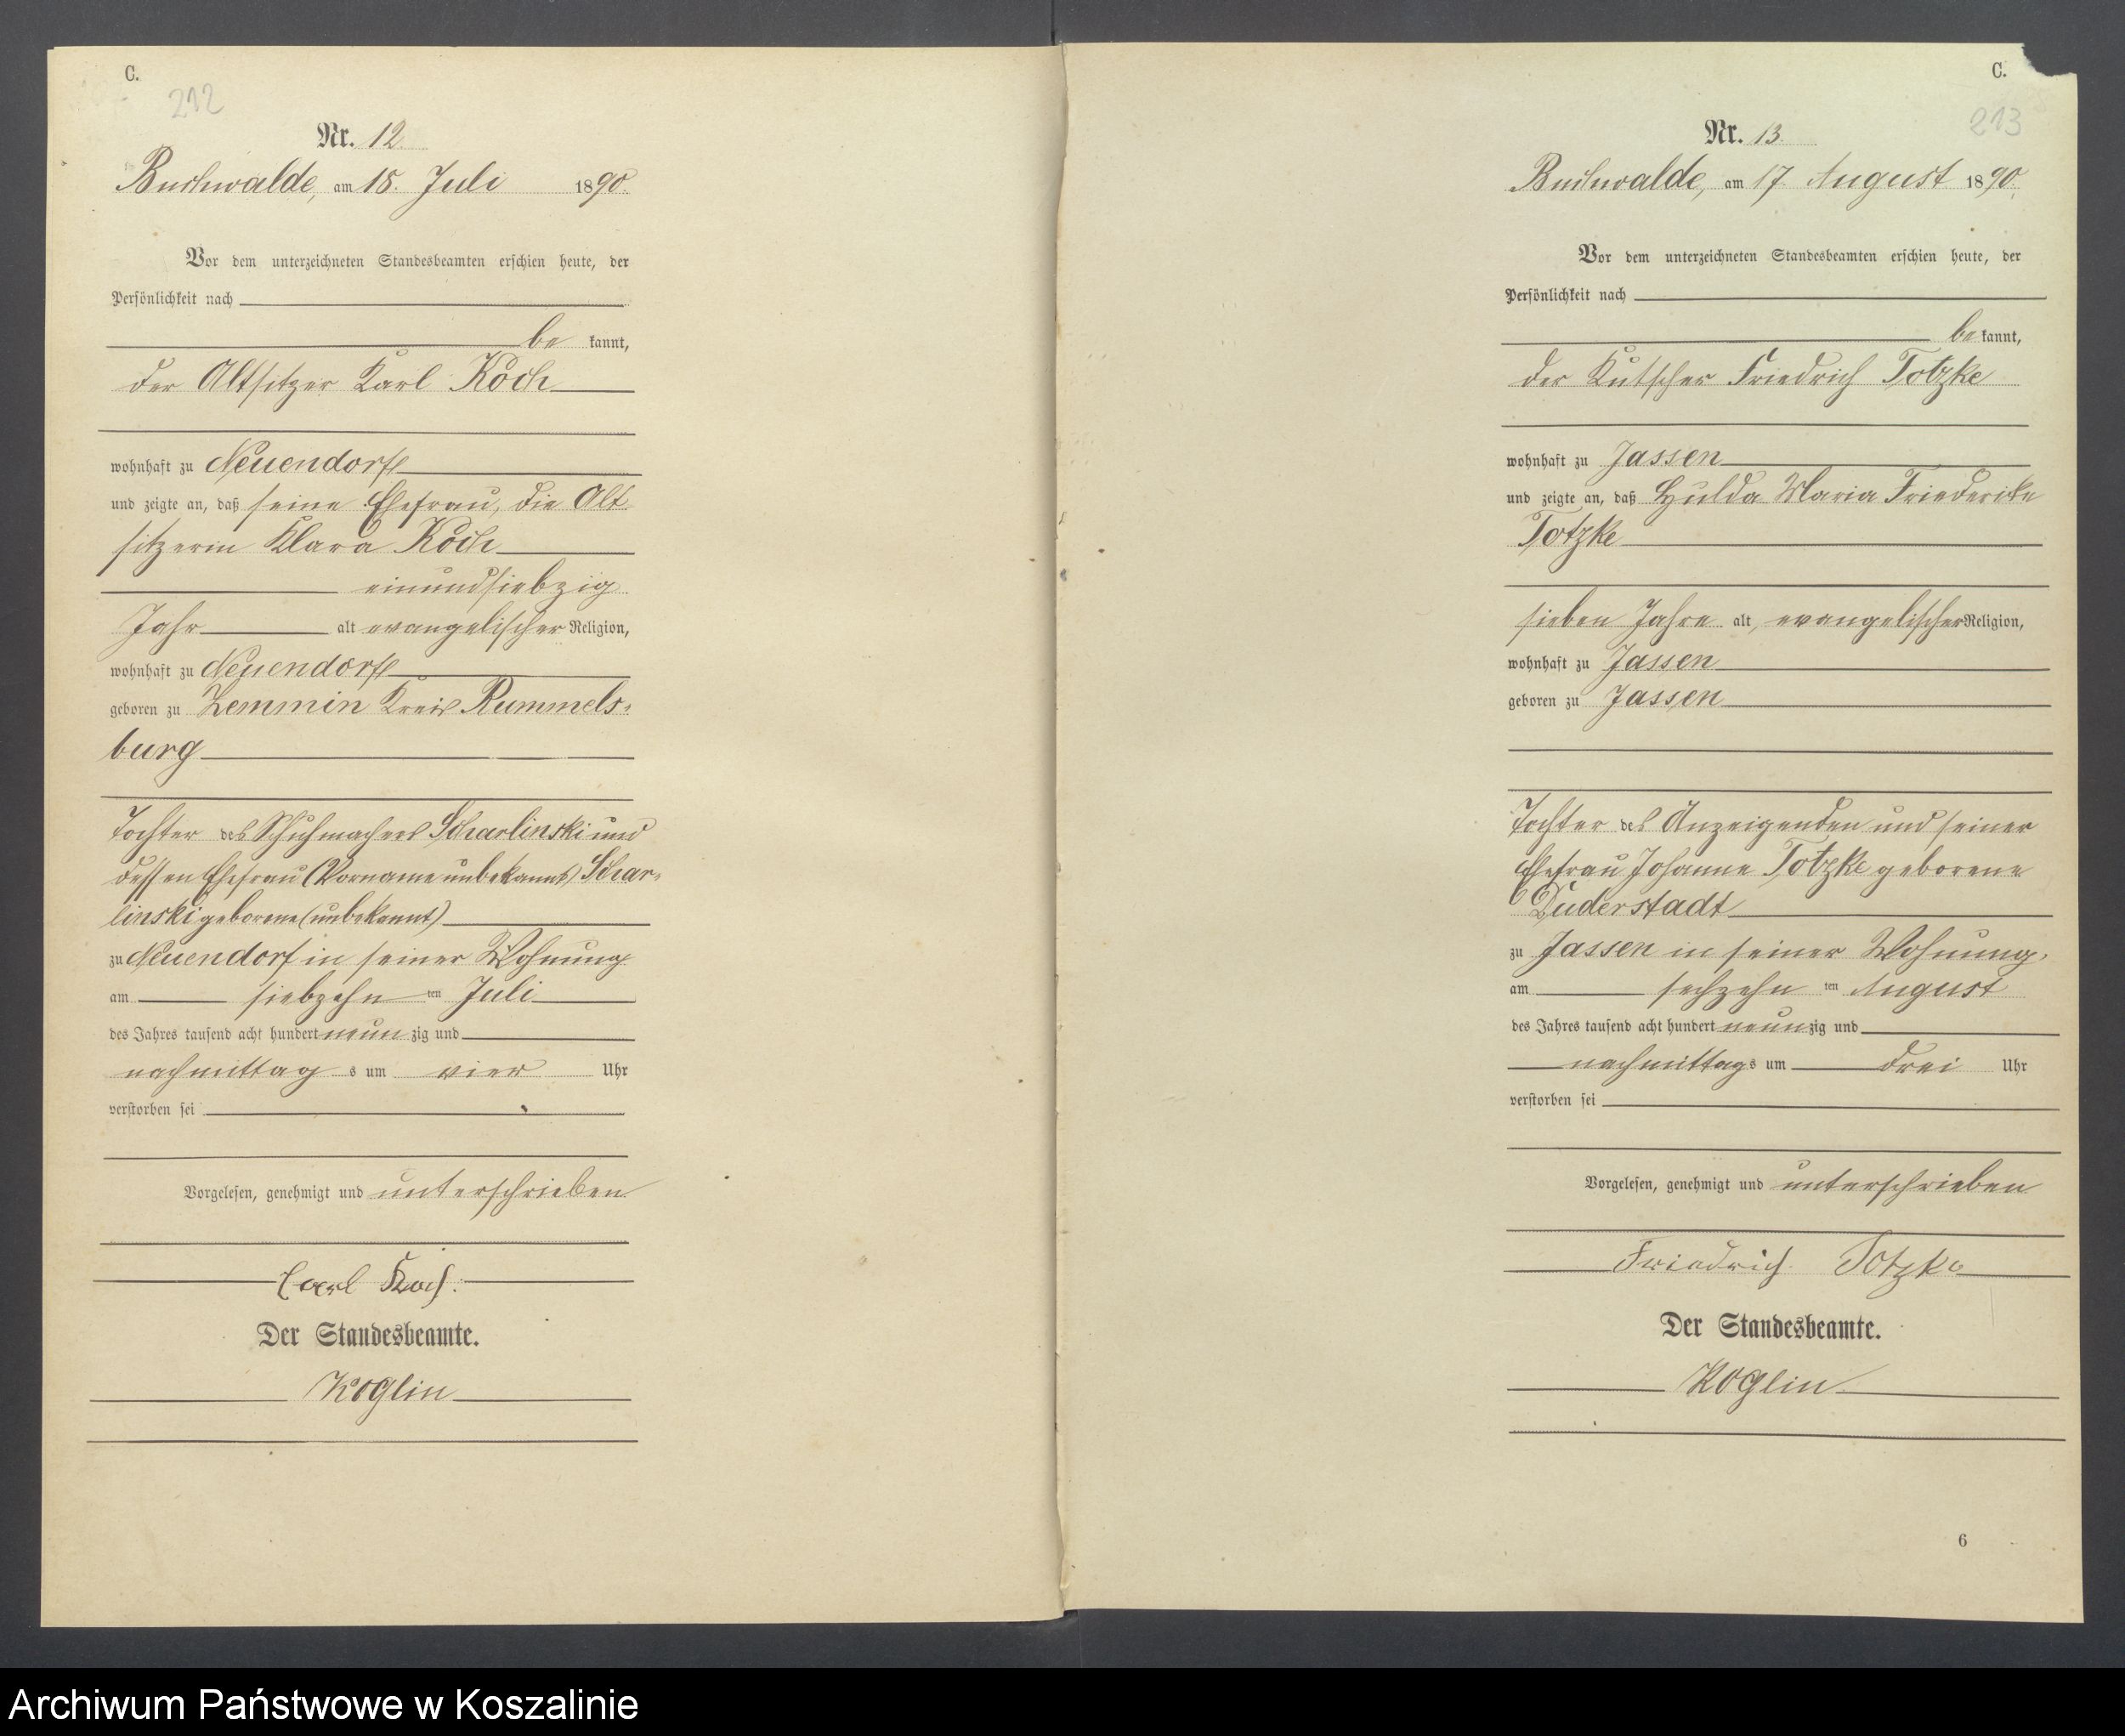 C.
212
Nr. 12.
Buchwalde, am 18. Juli 1890.
Vor dem unterzeichneten Standesbeamten erschien heute, der
Persönlichkeit nach
be kannt,
der Altsitzer Karl Koch
wohnhaft zu Neuendorf
und zeigte an, daß seine Ehefrau, die Alt
sitzerin Klara Koch
einundsiebzig
Jahr alt evangelischer Religion,
wohnhaft zu Neuendorf
geboren zu Zemmin Kreis Rummels-
burg
Tochter des Schuhmachers Scharlinski und
dessen Ehefrau (Vorname unbekannt) Schar-
linski geborene (unbekannt)
zu Neuendorf in seiner Wohnung
am siebzehn ten Juli
des Jahres tausend acht hundert neun zig und
nachmittag s um vier Uhr
verstorben sei
Vorgelesen, genehmigt und unterschrieben
Carl Koch.
Der Standesbeamte.
Koglin
C.
213
Nr. 13.
Buchwalde, am 17. August 1890.
Vor dem unterzeichneten Standesbeamten erschien heute, der
Persönlichkeit nach
be kannt,
der Kutscher Friedrich Totzke
wohnhaft zu Jassen
und zeigte an, daß Hulda Maria Friederike
Totzke
sieben Jahre alt, evangelischer Religion,
wohnhaft zu Jassen
geboren zu Jassen
Tochter des Anzeigenden und seiner
Ehefrau Johanne Totzke geborene
Duderstadt
zu Jassen in seiner Wohnung,
am sechzehn ten August
des Jahres tausend acht hundert neun zig und
nachmittag s um drei Uhr
verstorben sei
Vorgelesen, genehmigt und unterschrieben
Friedrich Totzke
Der Standesbeamte.
Koglin
6
Archiwum Państwowe w Koszalinie